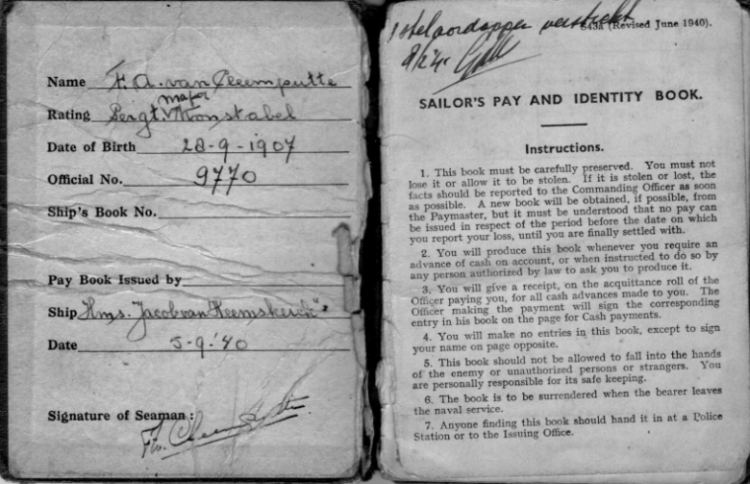 Name F. A. van Cleemputte
major
Rating Sergt. Konstabel
Date of Birth 28-9-1907
Official No. 9770
Ship's Book No.
Pay Book Issued by
Ship Hms. "Jacob van Heemskerck"
Date 5-9-'40
Signature of Seaman:
1 stel oordoppen verstrekt
S43a (Revised June 1940).
SAILOR'S PAY AND IDENTITY BOOK.
Instructions.
1. This book must be carefully preserved. You must not
lose it or allow it to be stolen. If it is stolen or lost, the
facts should be reported to the Commanding Officer as soon
as possible. A new book will be obtained, if possible, from
the Paymaster, but it must be understood that no pay can
be issued in respect of the period before the date on which
you report your loss, until you are finally settled with.
2. You will produce this book whenever you require an
advance of cash on account, or when instructed to do so by
any person authorized by law to ask you to produce it.
3. You will give a receipt, on the acquittance roll of the
Officer paying you, for all cash advances made to you. The
Officer making the payment will sign the corresponding
entry in his book on the page for Cash payments.
4. You will make no entries in this book, except to sign
your name on page opposite.
5. This book should not be allowed to fall into the hands
of the enemy or unauthorized persons or strangers. You
are personally responsible for its safe keeping.
6. The book is to be surrendered when the bearer leaves
the naval service.
7. Anyone finding this book should hand it in at a Police
Station or to the Issuing Office.